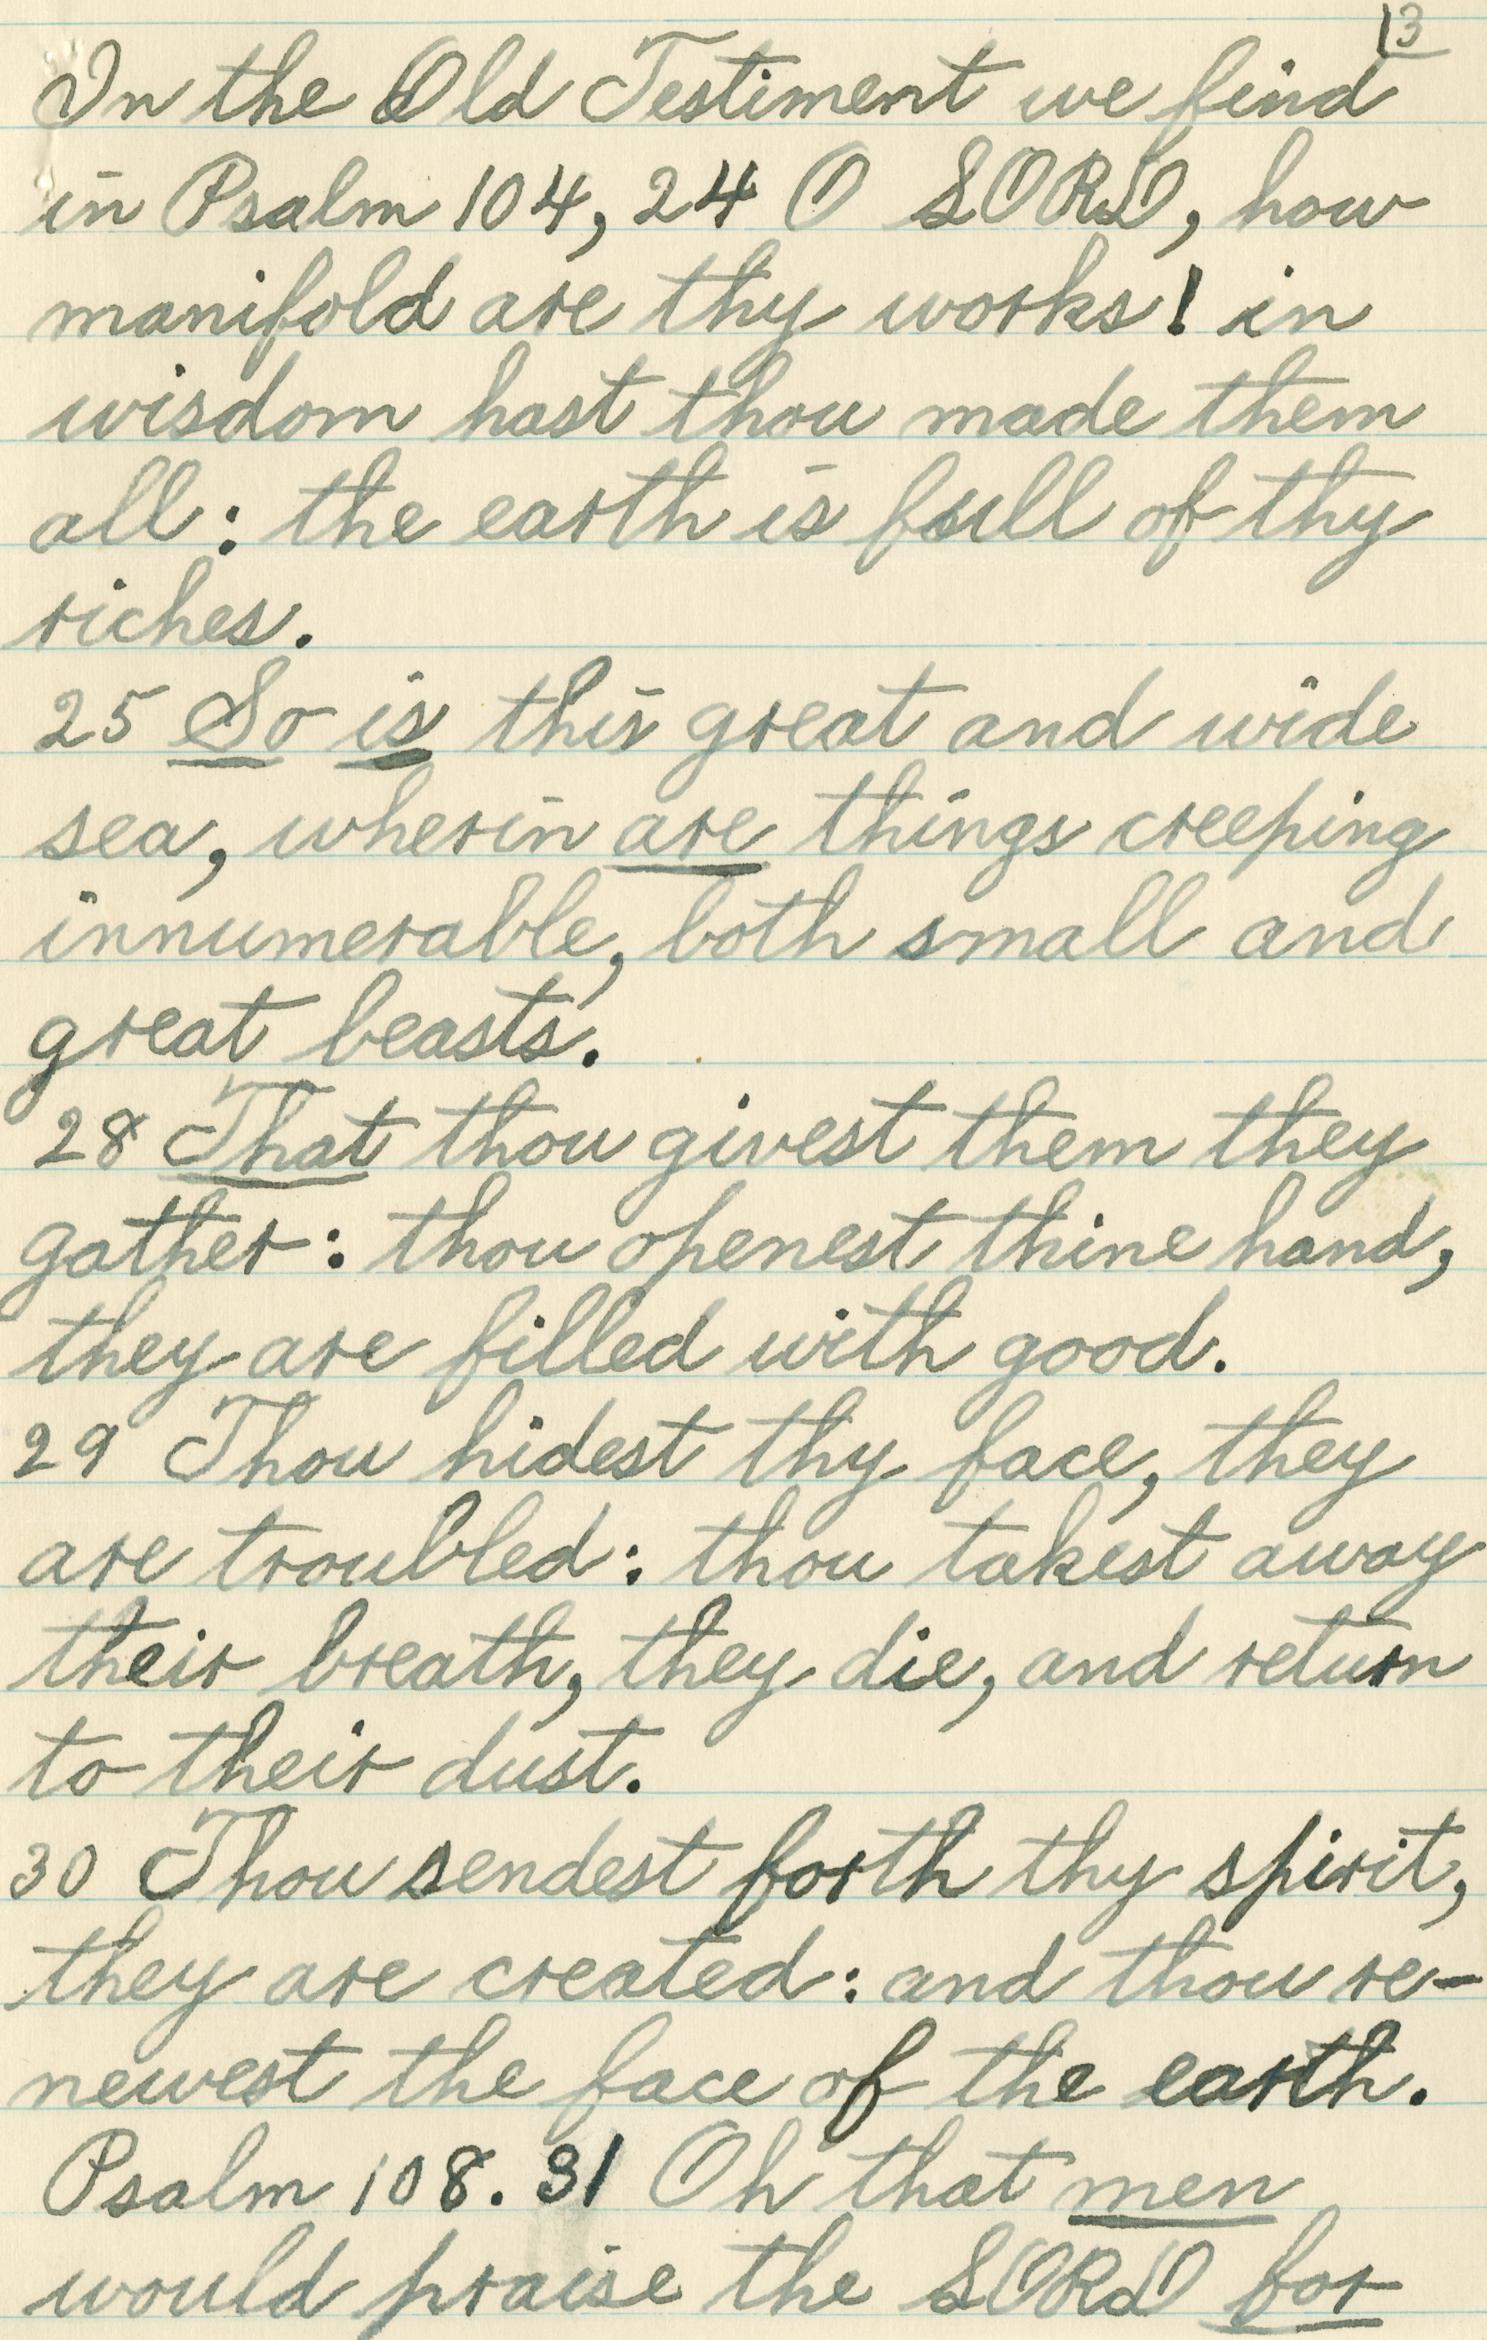 13
In the Old Testiment we find
in Psalm 104, 24 O LORD, how
manifold are thy works! in
wisdom hast thou made them
all: the earth is full of thy
riches.
25 So is this great and wide
sea, wherin are things creeping
innumerable, both small and
great beasts.
28 That thou givest them they
gather: thou openest thine hand,
they are filled with good.
29 Thou hidest thy face, they
are troubled: thou takest away
their breath, they die, and return
to their dust.
30 Thou sendest forth thy spirit,
they are created: and thou re-
newest the face of the earth.
Psalm 108. 31 Oh that men
would praise the LORD for